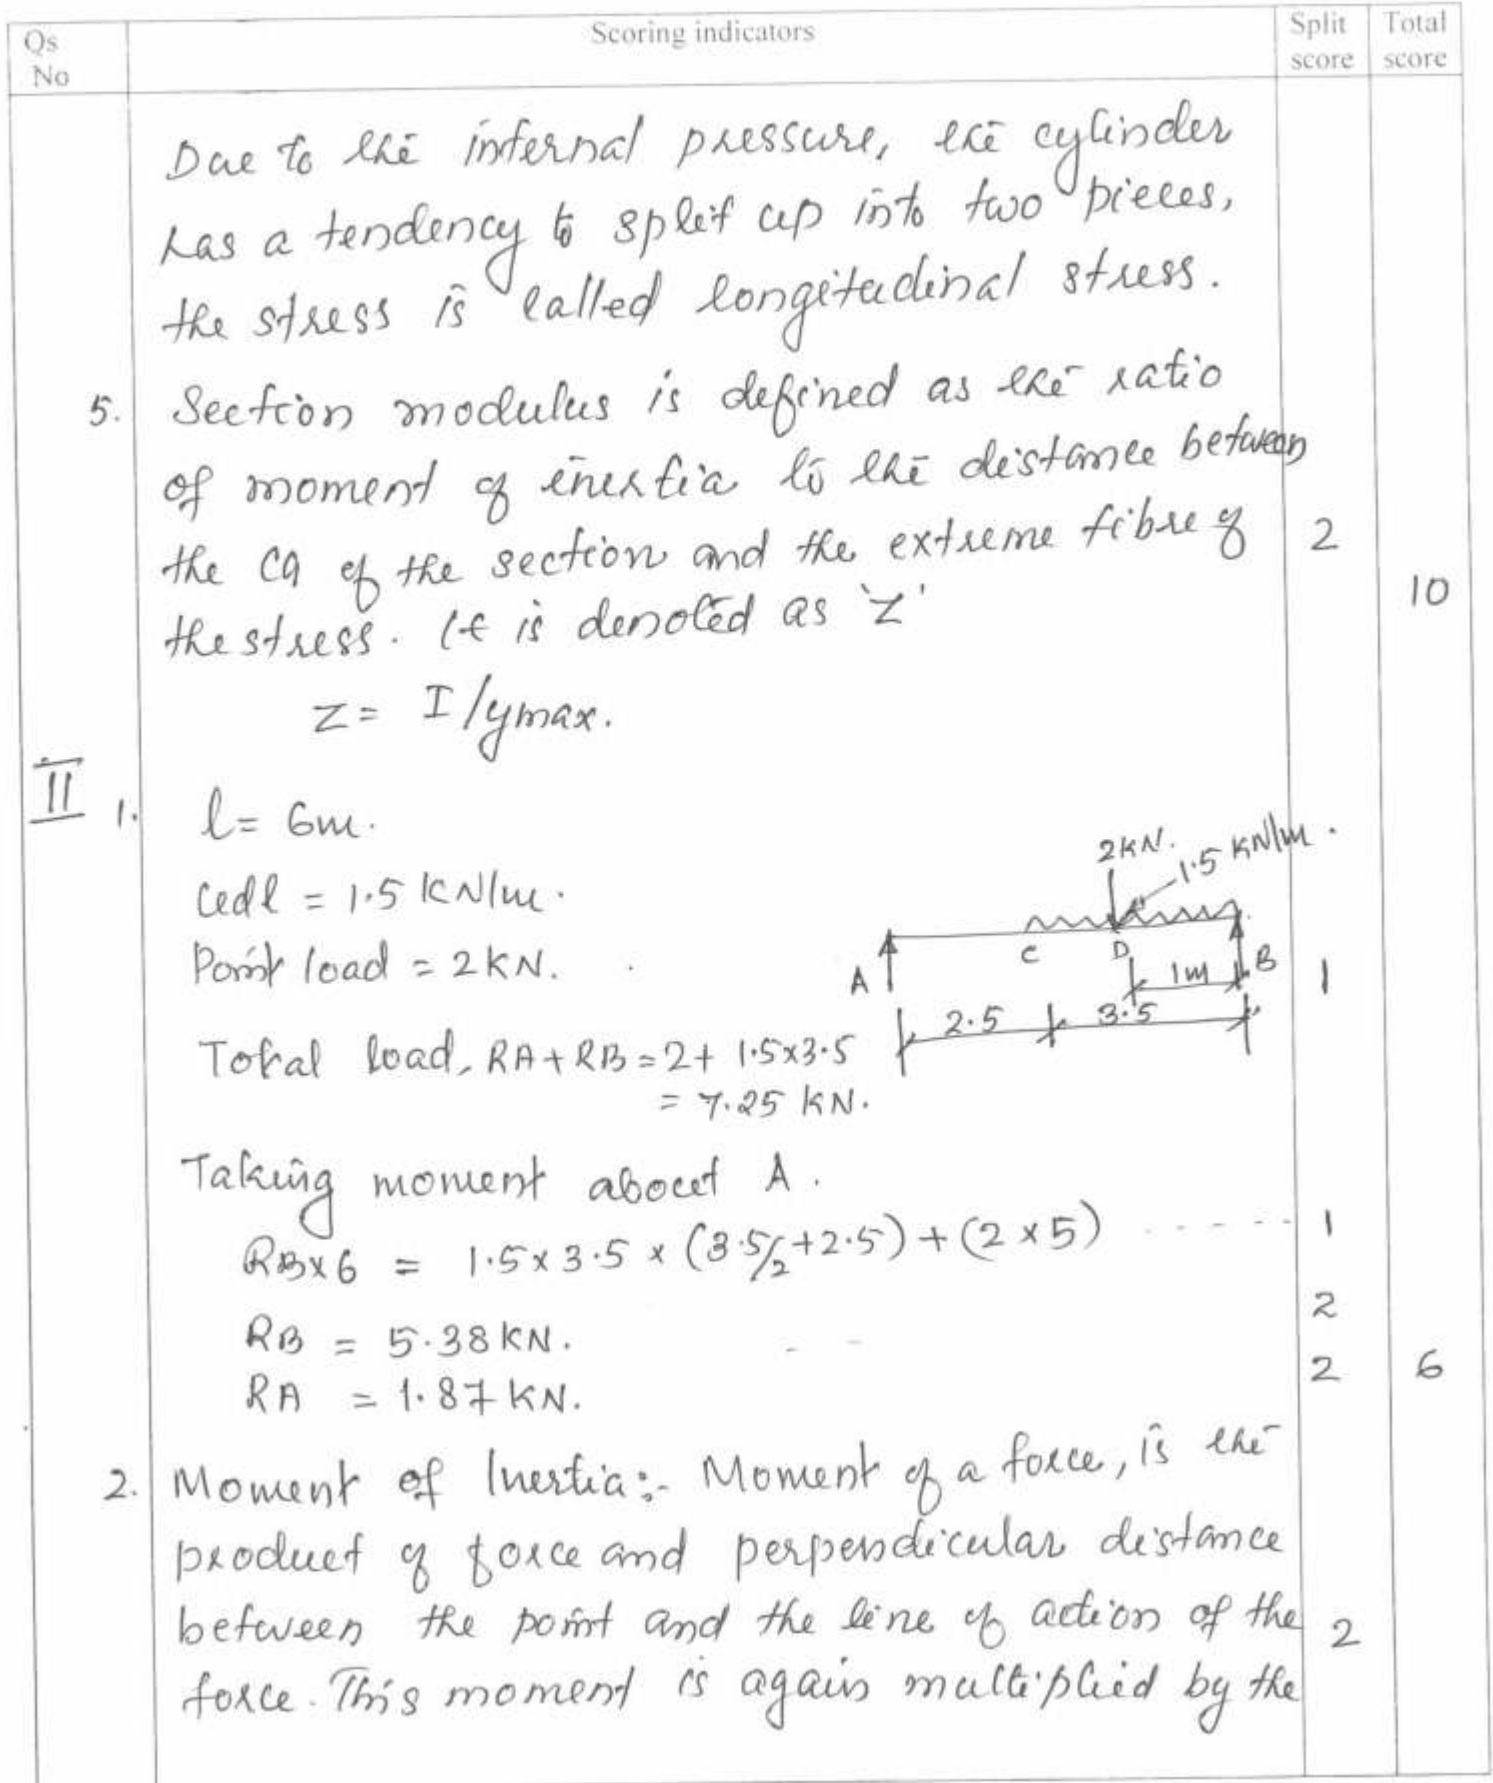 Qs No
Scoring indicators
Split score
Total score
Due to the internal pressure, the cylinder
has a tendency to split up into two pieces,
the stress is called longitudinal stress.
5. Section modulus is defined as the ratio
of moment of inertia to the distance between
the CG of the section and the extreme fibre of
2
the stress. It is denoted as 'Z'
10
Z = I/ymax.
II 1. l = 6m.
udl = 1.5 KN/m.
2KN. 1.5 KN/m.
Point load = 2KN.
A C D B
1m
1
2.5 3.5
Total load, RA + RB = 2 + 1.5x3.5
= 7.25 KN.
Taking moment about A.
RBx6 = 1.5 x 3.5 x (3.5/2 + 2.5) + (2 x 5) ----- 1
RB = 5.38 KN. - - 2
RA = 1.87 KN. 2 6
2. Moment of Inertia:- Moment of a force, is the
product of force and perpendicular distance
between the point and the line of action of the 2
force. This moment is again multiplied by the